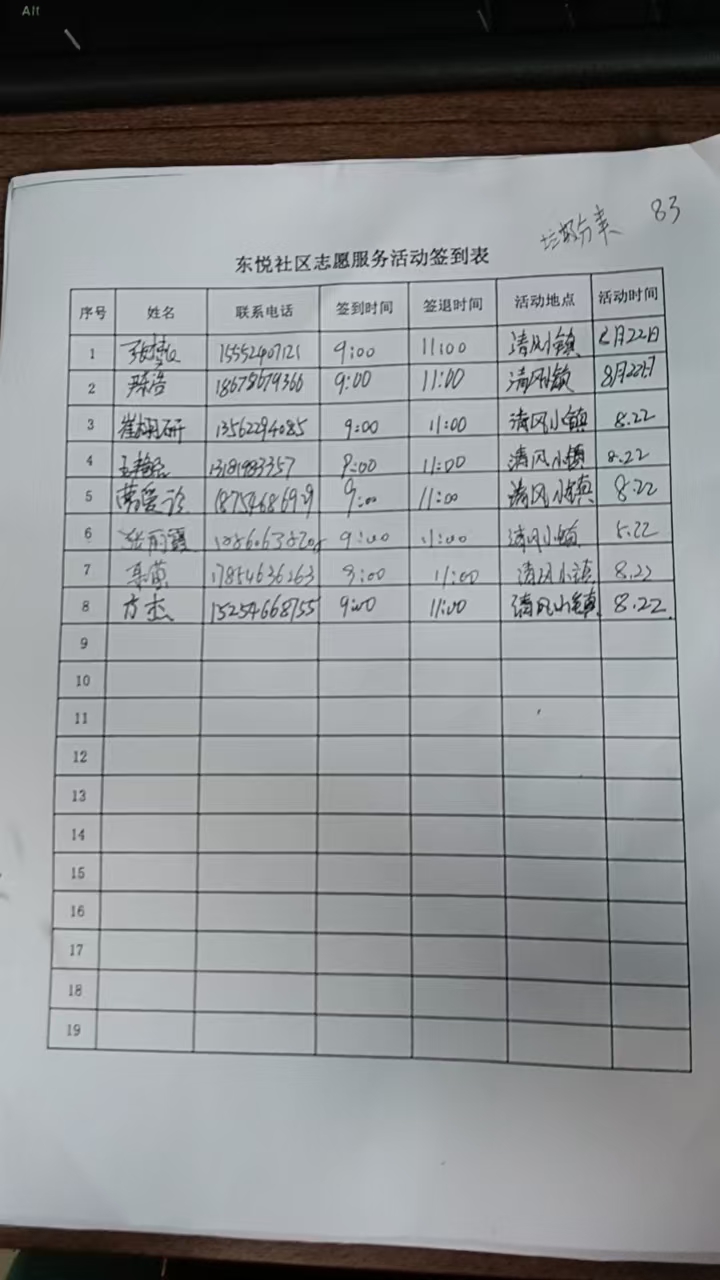 Alt
垃圾分类 83
东悦社区志愿服务活动签到表
序号 姓名 联系电话 签到时间 签退时间 活动地点 活动时间
1 15552407121 9:00 11:00 清风小镇 8月22日
2 18678679366 9:00 11:00 清风小镇 8月22日
3 13562294085 9:00 11:00 清风小镇 8.22
4 13181983357 9:00 11:00 清风小镇 8.22
5 9:00 11:00 清风小镇 8.22
6 张丽霞 9:00 11:00 清风小镇 8.22
7 17854636263 9:00 11:00 清风小镇 8.22
8 方杰 15254668755 9:00 11:00 清风小镇 8.22
9
10
11
12
13
14
15
16
17
18
19